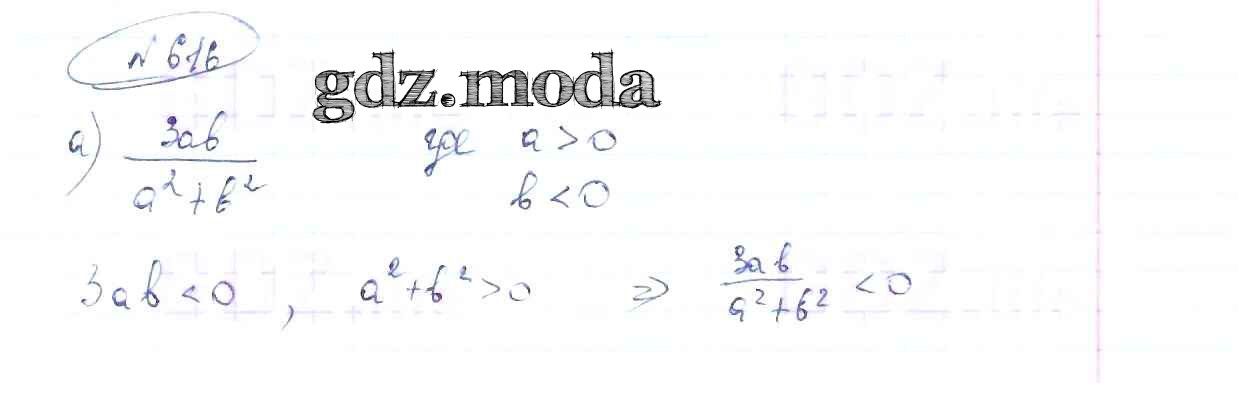 № 616
gdz.moda
а) 3ab / a²+b² где a > 0
b < 0
3ab < 0, a²+b² > 0 => 3ab / a²+b² < 0